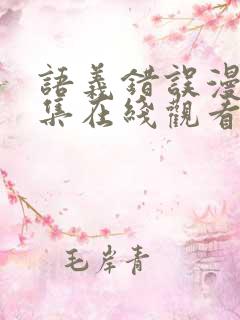 語義錯誤漫
集在綫觀看
毛岸青